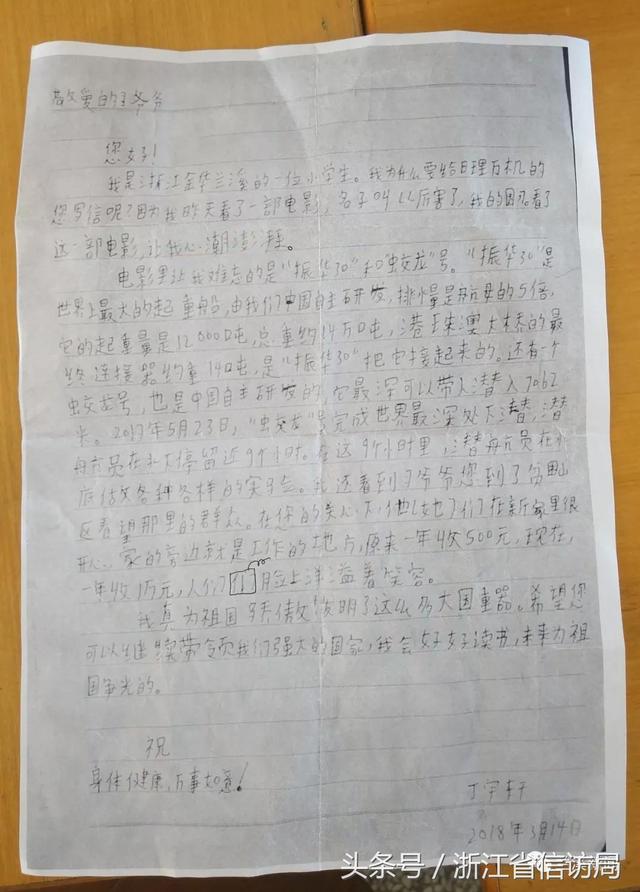 敬爱的爷爷
您好！
我是浙江金华兰溪的一位小学生。我为什么要给日理万机的
您写信呢？因为我昨天看了一部电影，名字叫《厉害了，我的国》看了
这一部电影，让我心潮澎湃。
电影里让我难忘的是“振华30”和“蛟龙”号。“振华30”是
世界上最大的起重船，由我们中国自主研发，排水量是航母的5倍，
它的起重量是12000吨，总重约14万吨，港珠澳大桥的最
终连接器约重 吨，是“振华30”把它接起来的。还有个
蛟龙号，也是中国自主研发的，它最深可以带人潜入7062
米。2017年5月23日，“蛟龙”号完成世界最深处下潜，潜
航员在水下停留近9个小时。在这9个小时里，潜航员在水
底做各种各样的实验。我还看到习爷爷您到了贫困山
区看望那里的群众。在您的关心下，他(她)们在新家里很
开心，家的旁边就是工作的地方，原来一年收500元，现在，
一年收1万元，人们脸上洋溢着笑容。
我真为祖国骄傲发明了这么多大国重器。希望您
可以继续带领我们强大的国家，我会好好读书，未来为祖
国争光的。
祝
身体健康，万事如意！
丁宇轩
2018年3月14日
头条号／浙江省信访局